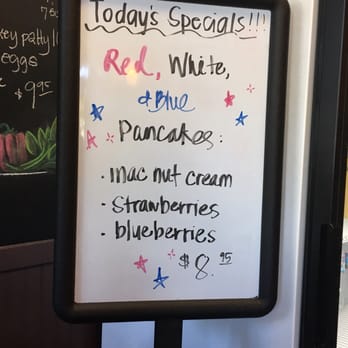 Today's Specials!!!
Red, White,
& Blue
Pancakes:
· mac nut cream
· strawberries
· blueberries
$8.95
key patty
eggs
$9.95